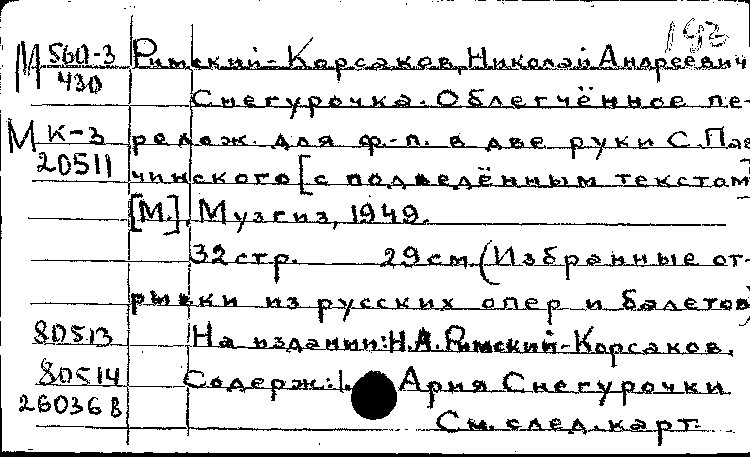 193
М 560-3 Римский-Корсаков, Николай Андреевич
430
Снегурочка. Облегчённое пе-
М К-3 релож. для ф.-п. в две руки С. Пав
20511
чинского [с подведённым текстом]
[М.], Музгиз, 1949.
32 стр. 29 см. (Избранные от-
рывки из русских опер и балетов)
80513 На издании: Н.А. Римский-Корсаков.
80514 Содерж: 1. Ария Снегурочки
260368
См. след. карт.